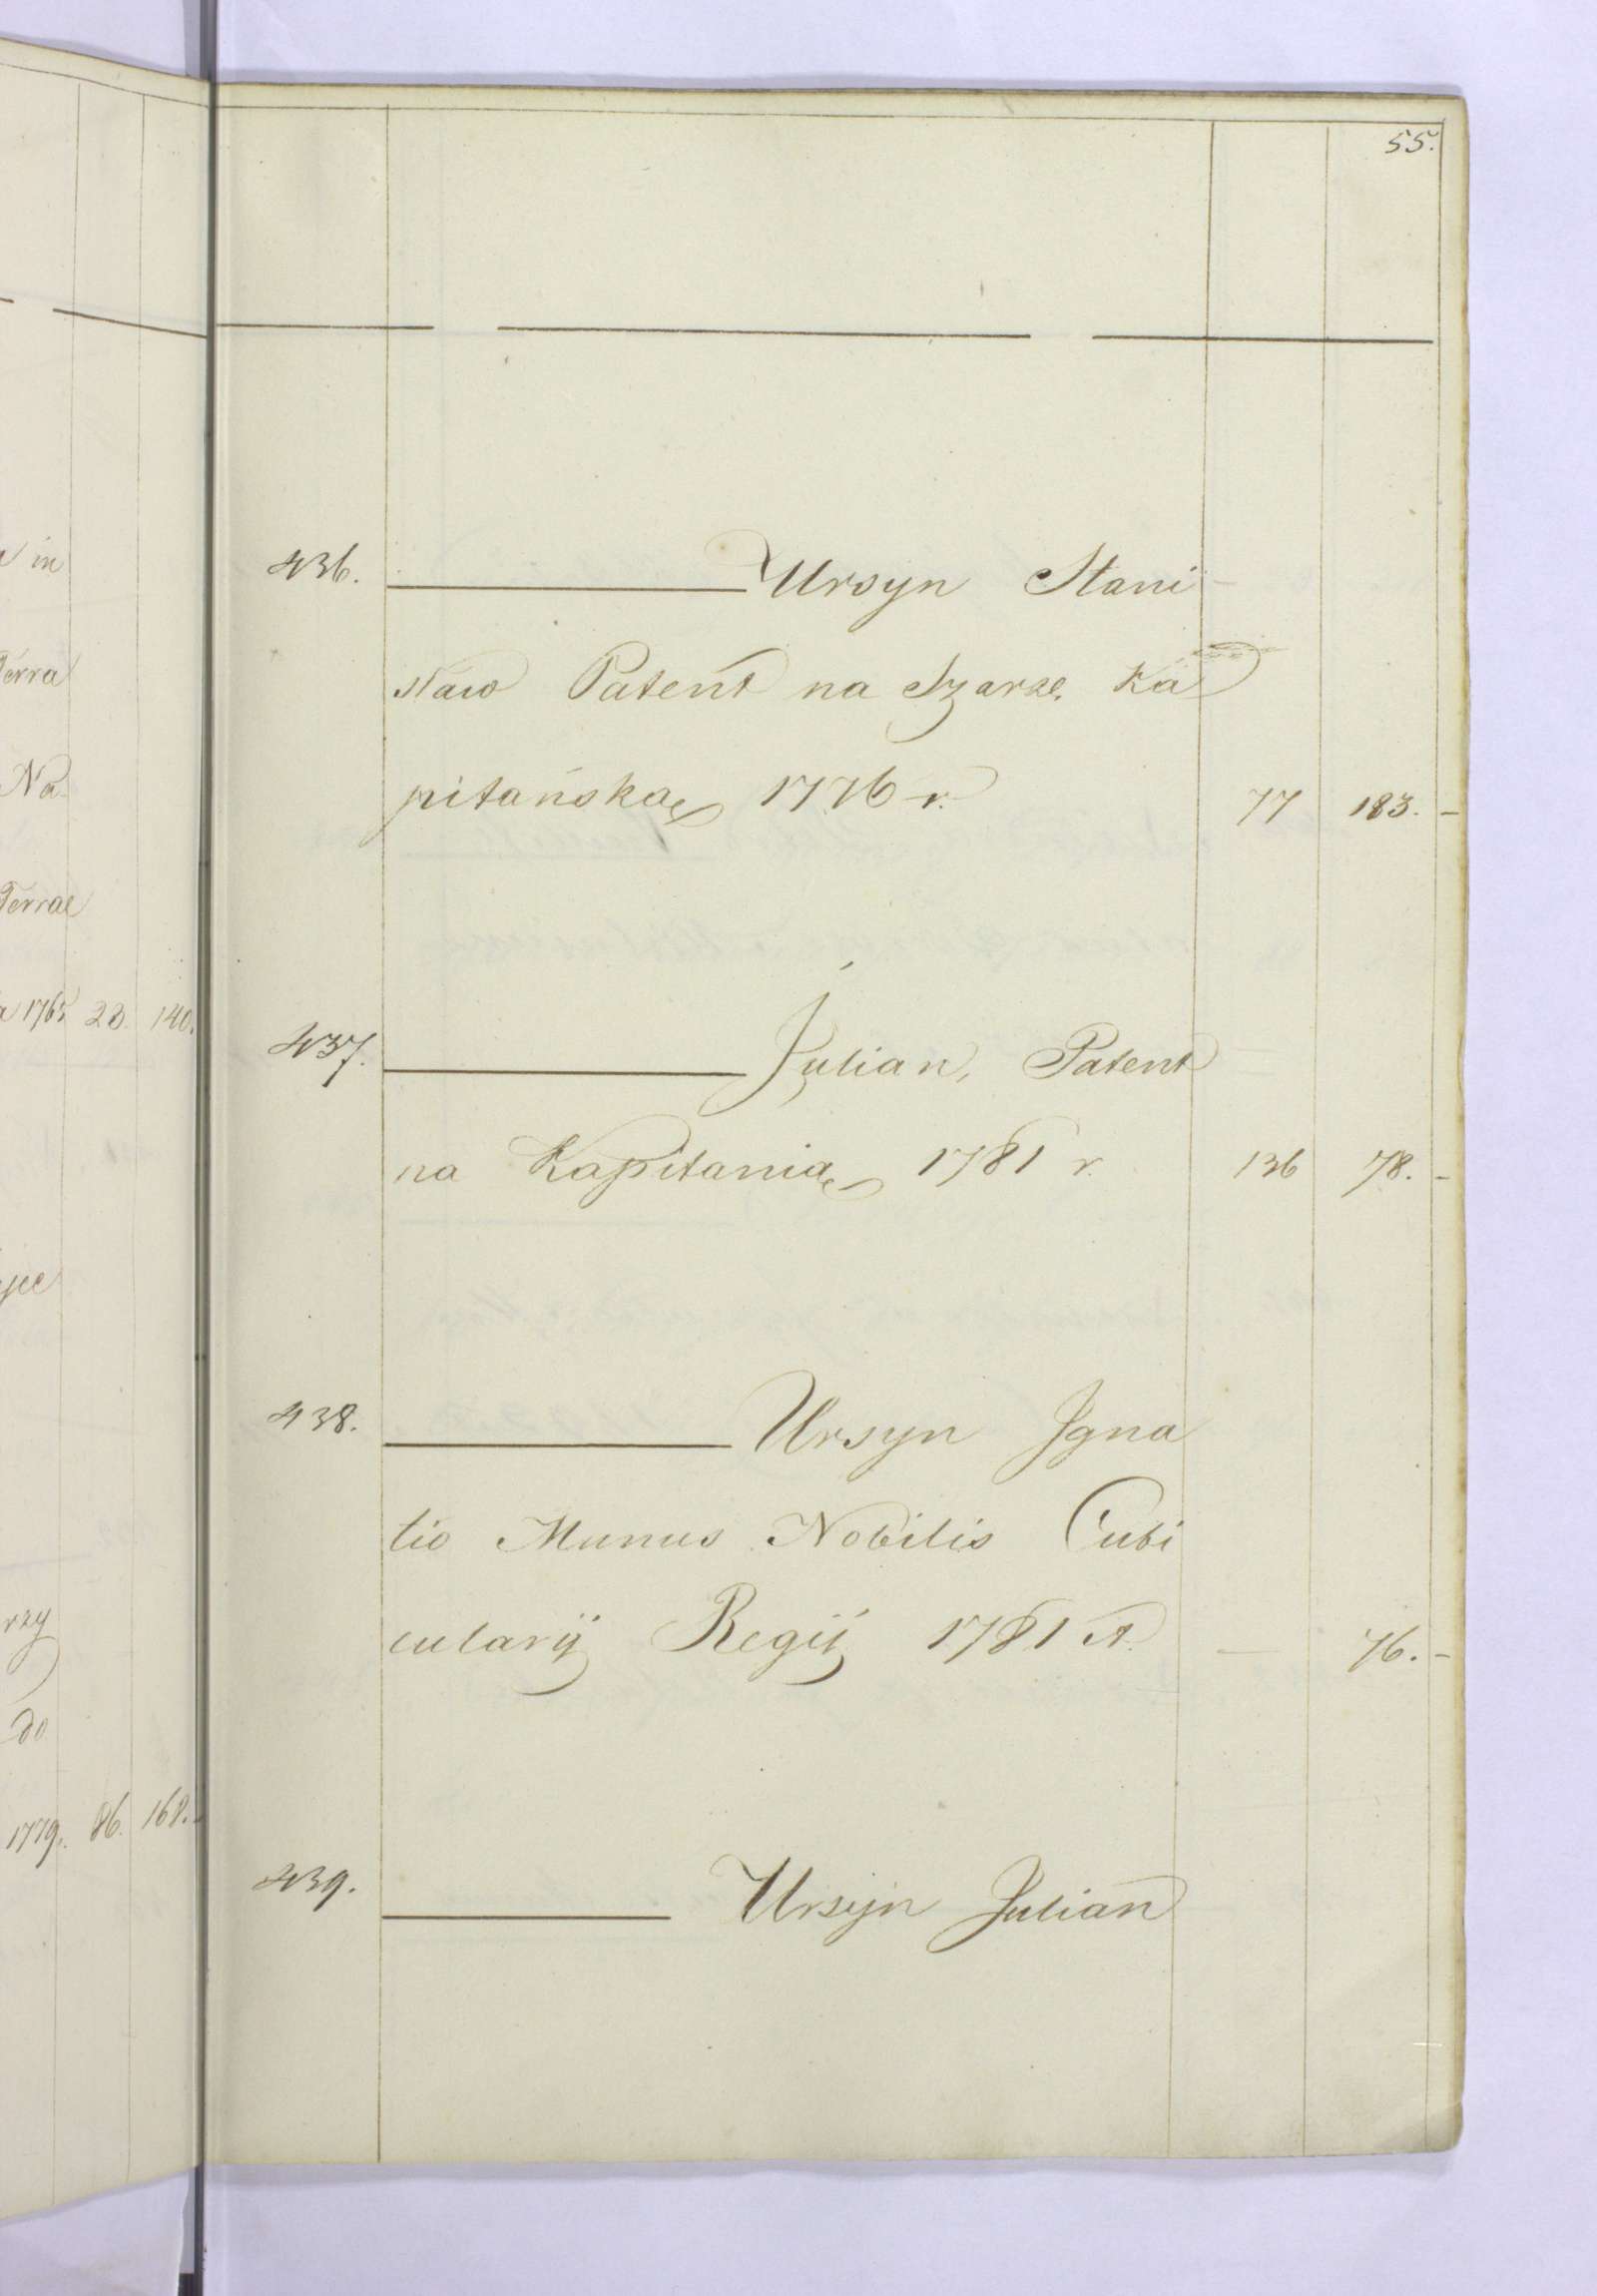 55.
436. Ursyn Stani
sław Patent na Szarżę Ka
pitańską 1776 r. 77 183. -
437. Julian, Patent
na Kapitanią 1781 r. 136 78. -
438. Ursyn Igna
tio Munus Nobilis Cubi
cularij Regij 1781 A. — 76. -
439. Ursyn Julian
in
Terra
Na
Terrae
1765 23. 140.
rzy
do
1779. 86. 168.